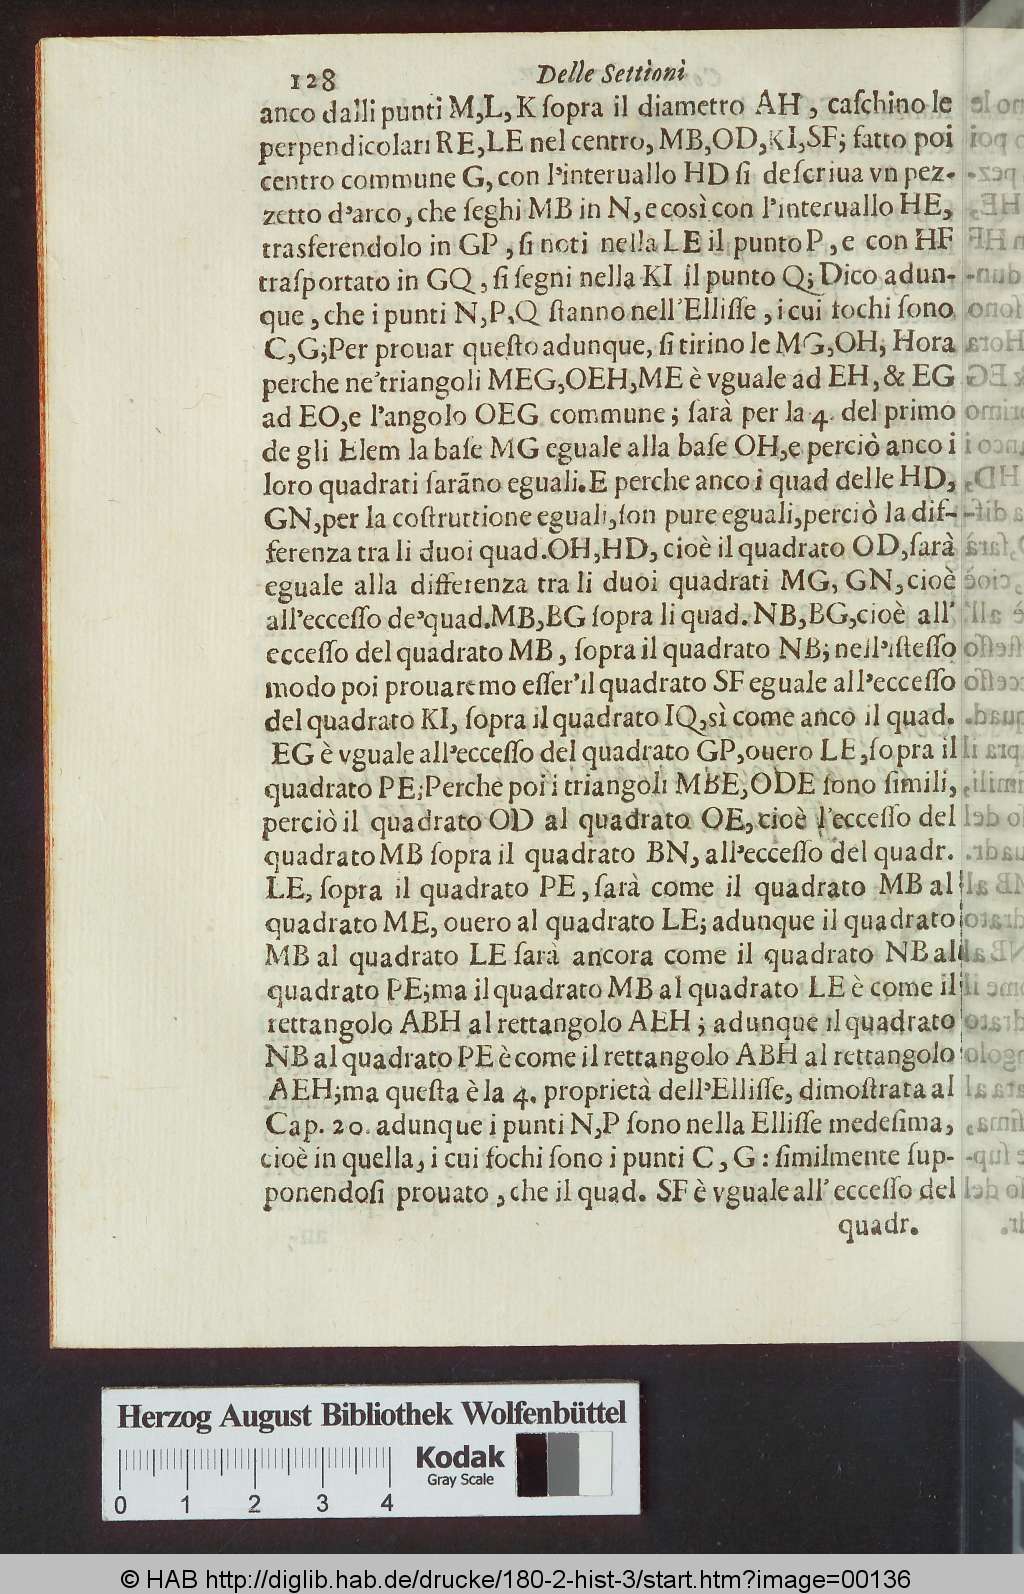 128 Delle Settioni
anco dalli punti M,L,K ſopra il diametro AH, caſchino le
perpendicolari RE,LE nel centro, MB,OD,KI,SF; fatto poi
centro commune G, con l'interuallo HD ſi deſcriua vn pez-
zetto d'arco, che ſeghi MB in N, e così con l'interuallo HE,
trasferendolo in GP, ſi noti nella LE il punto P, e con HF
traſportato in GQ, ſi ſegni nella KI il punto Q; Dico adun-
que, che i punti N,P,Q ſtanno nell'Elliſſe, i cui fochi ſono
C,G; Per prouar queſto adunque, ſi tirino le MG,OH; Hora
perche ne'triangoli MEG,OEH,ME è vguale ad EH, & EG
ad EO,e l'angolo OEG commune; ſarà per la 4. del primo
de gli Elem la baſe MG eguale alla baſe OH,e perciò anco i
loro quadrati ſarãno eguali. E perche anco i quad delle HD,
GN,per la coſtruttione eguali,ſon pure eguali,perciò la dif-
ferenza tra li duoi quad.OH,HD, cioè il quadrato OD,ſarà
eguale alla differenza tra li duoi quadrati MG, GN,cioè
all'ecceſſo de'quad.MB,BG ſopra li quad. NB,BG,cioè all'
ecceſſo del quadrato MB, ſopra il quadrato NB; nell'iſteſſo
modo poi prouaremo eſſer'il quadrato SF eguale all'ecceſſo
del quadrato KI, ſopra il quadrato IQ,sì come anco il quad.
EG è vguale all'ecceſſo del quadrato GP,ouero LE,ſopra il
quadrato PE;Perche poi i triangoli MBE,ODE ſono ſimili,
perciò il quadrato OD al quadrato OE, cioè l'ecceſſo del
quadrato MB ſopra il quadrato BN, all'ecceſſo del quadr.
LE, ſopra il quadrato PE, ſarà come il quadrato MB al
quadrato ME, ouero al quadrato LE; adunque il quadrato
MB al quadrato LE ſarà ancora come il quadrato NB al
quadrato PE;ma il quadrato MB al quadrato LE è come il
rettangolo ABH al rettangolo AEH; adunque il quadrato
NB al quadrato PE è come il rettangolo ABH al rettangolo
AEH;ma queſta è la 4. proprietà dell'Elliſſe, dimoſtrata al
Cap. 20. adunque i punti N,P ſono nella Elliſſe medeſima,
cioè in quella, i cui fochi ſono i punti C, G: ſimilmente ſup-
ponendoſi prouato, che il quad. SF è vguale all'ecceſſo del
quadr.
Herzog August Bibliothek Wolfenbüttel
Kodak
Gray Scale
0 1 2 3 4
© HAB http://diglib.hab.de/drucke/180-2-hist-3/start.htm?image=00136